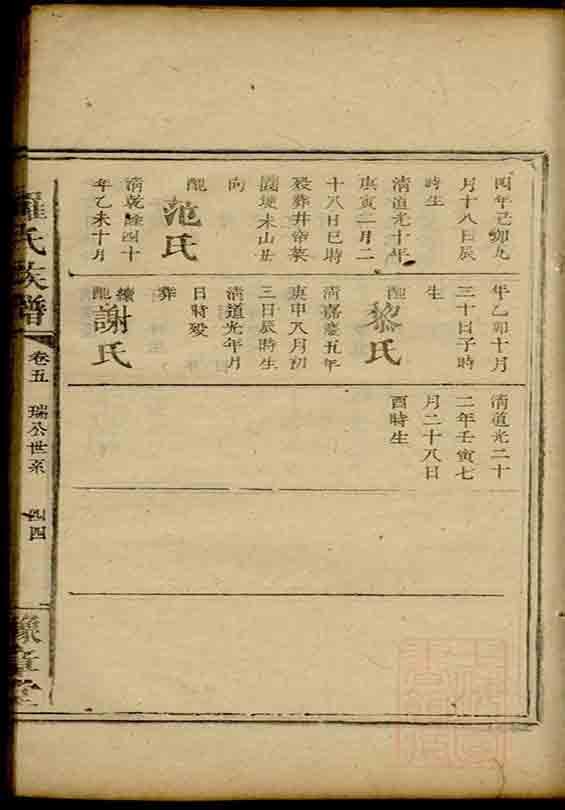 四年己卯九
月十八日辰
時生
清道光十年
庚寅二月二
十八日巳時
歿葬井帝菜
園埂未山丑
向
配
范氏
清乾隆四十
年乙未十月
年乙卯十月
三十日子時
生
配
黎氏
清嘉慶五年
庚申八月初
三日辰時生
清道光年月
日時殁
葬
續配
謝氏
清道光二十
二年壬寅七
月二十八日
酉時生
羅氏族譜
卷五
瑞公世系
四四
豫章堂